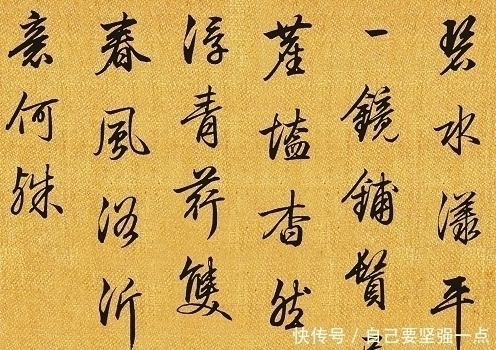 碧水漾平
一鏡鋪
塵壒杳然
浮青荇雙
春風浴沂
意何殊
快传号 / 自己要坚强一点